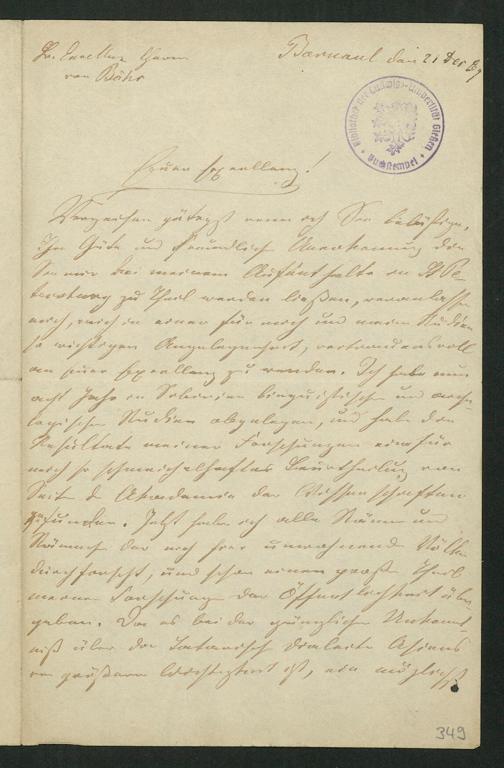 Sr. Excellenz Herrn
von Bähr
Barnaul den 21 Dec 69
Bibliothek der Ludwigs-Universität Gießen
Buchstempel
Euer Excellenz!
Verzeihen gütigst wenn ich Sie belästige,
Ihre Güte und freundliche Anerkennung die
Sie mir bei meinem Aufenthalte in St Pe-
tersburg zu Theil werden ließen, veranlassen
mich, mich in einer für mich und meine Studien
so wichtigen Angelegenheit, vertrauensvoll
an Euer Excellenz zu wenden. Ich habe nun
acht Jahre in Sibirien linguistischen und
Studien obgelegen, und habe die
Resultate meiner Forschungen eine für
mich so schmeichelhaftes Beurtheilung von
Seiten d Akademie der Wissenschaften
gefunden. Jetzt habe ich alle Stämme und
der noch hier umwohnende Völker
durchforscht, und schon einen großen Theil
meiner Forschungen der Öffentlichkeit über-
geben. Da es bei der gänzlichen Unkennt-
niß über die tatarischen Dialecte Asiens
von größerer Wichtigkeit ist, ein möglichst
349